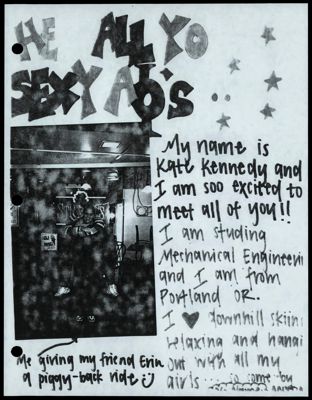 HE ALL YO
SEXY AO'S...
My name is
Kate Kennedy and
I am soo excited to
meet all of you!!
I am studing
Mechanical Engineeri
and I am from
Portland OR.
I ♥ downhill skiin
relaxing and hangi
out with all my
girls... so come by
Me giving my friend Erin
a piggy-back ride